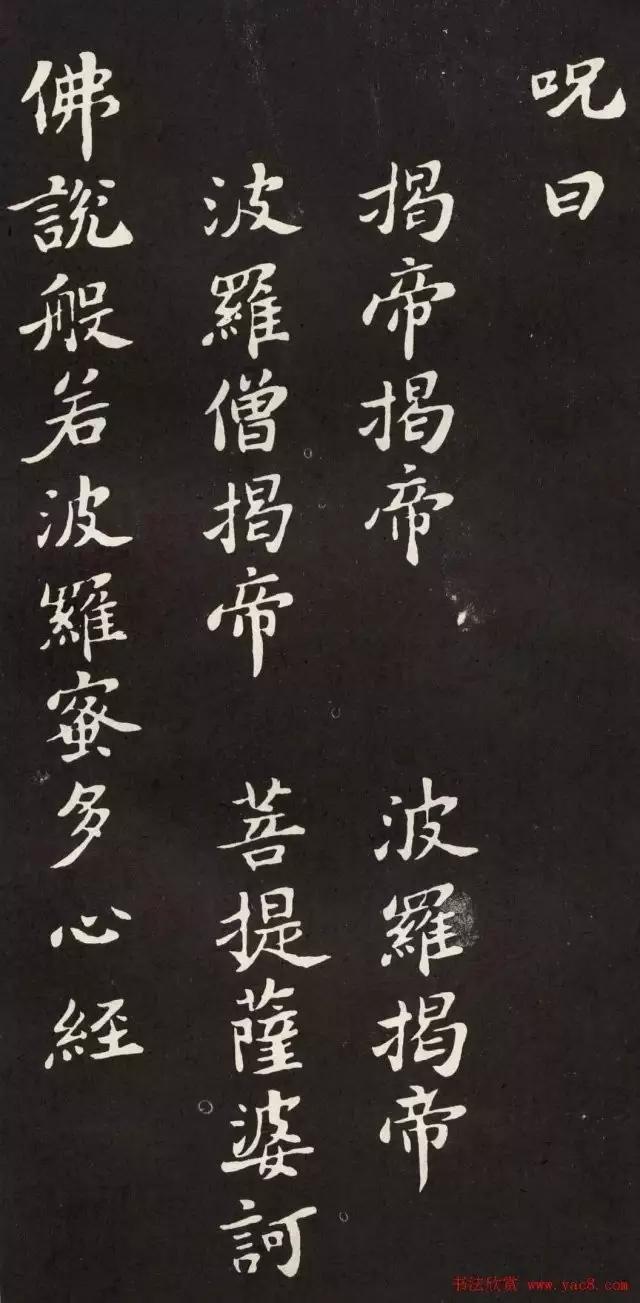 呪曰
揭帝揭帝 波羅揭帝
波羅僧揭帝 菩提薩婆訶
佛說般若波羅蜜多心経
书法欣赏 www.yac8.com